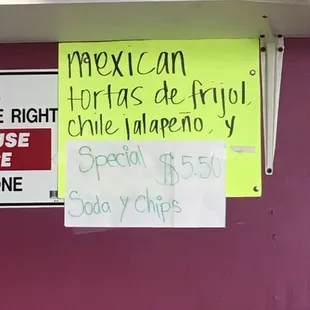 mexican
tortas de frijol,
chile jalapeño, y
Special $5.50
Soda y chips
E RIGHT
USE
E
ONE